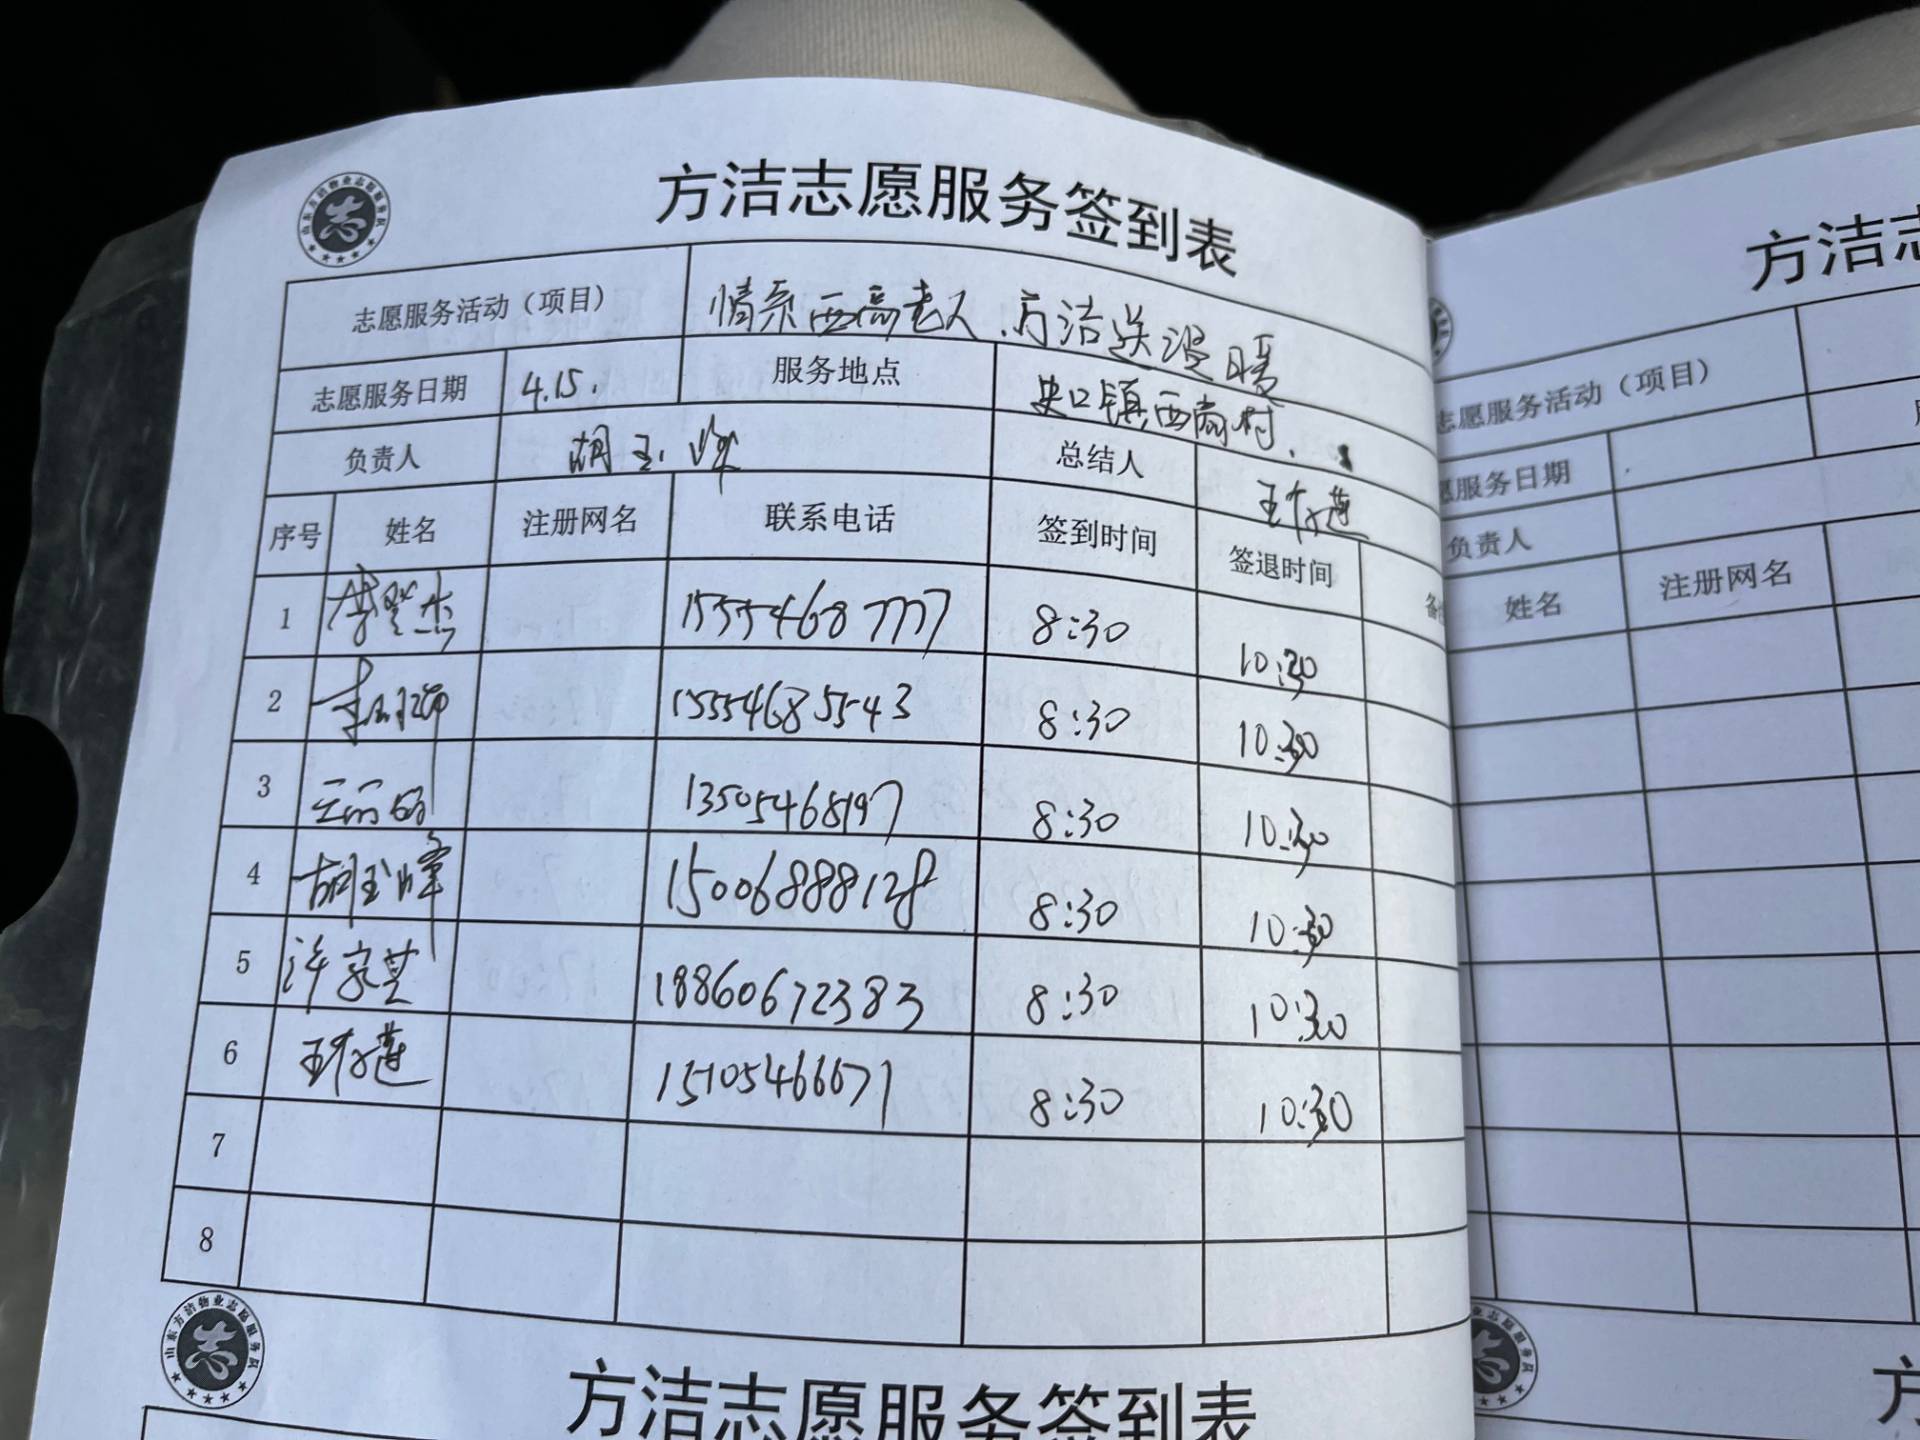 山东方洁物业志愿服务队
志
方洁志愿服务签到表
志愿服务活动（项目） 情系西商老人，方洁送温暖
志愿服务日期 4.15. 服务地点 史口镇西商村.
负责人 胡玉峰 总结人
序号 姓名 注册网名 联系电话 签到时间 签退时间 备
1 15554687777 8:30 10:30
2 15554685543 8:30 10:30
3 13505468197 8:30 10:30
4 胡玉峰 15006888128 8:30 10:30
5 许家芸 18860672383 8:30 10:30
6 15105466671 8:30 10:30
7
8
山东方洁物业志愿服务队
志
方洁志愿服务签到表
方洁志
志愿服务活动（项目）
愿服务日期
负责人
姓名 注册网名
方